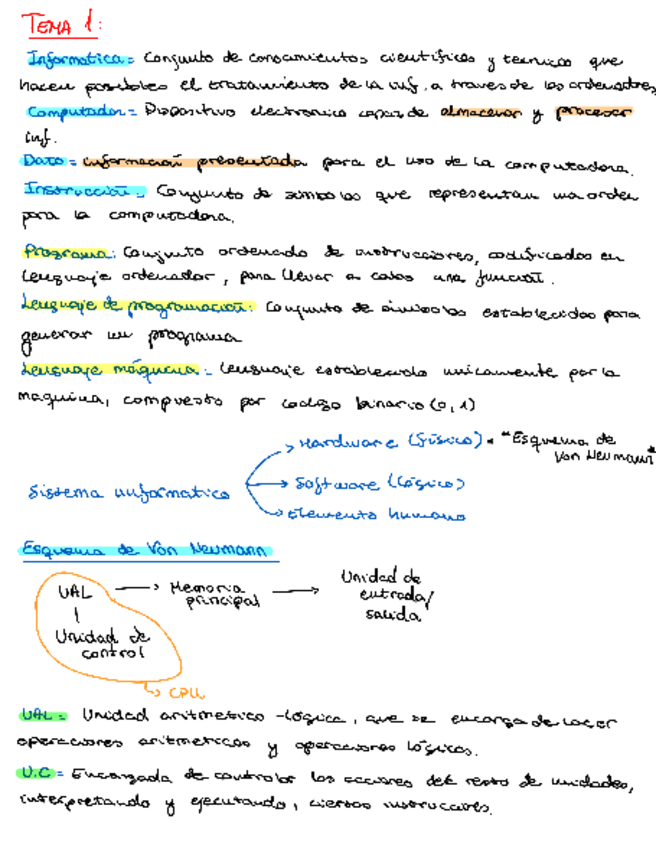 TEMA 1:
Informatica = Conjunto de conocimientos cientificos y tecnicos que
hacen posibles el tratamiento de la inf. a traves de los ordenadores
Computador = Dispositivo electronico capaz de almacenar y procesar
inf.
Dato = información presentada para el uso de la computadora.
Instrucción = Conjunto de simbolos que representan una orden
para la computadora.
Programa: Conjunto ordenado de instrucciones, codificados en
lenguaje ordenador, para llevar a cabo una función.
Lenguaje de programación: Conjunto de simbolos establecidos para
generar un programa
Lenguaje máquina = lenguaje establecido unicamente por la
maquina, compuesto por codigo binario (0,1)
Hardware (físico) * "Esquema de
Von Neumann"
Sistema informatico
Software (lógico)
Elemento humano
Esquema de Von Neumann
UAL Memoria principal Unidad de entrada/ salida
Unidad de
control
CPU
UAL = Unidad aritmetico-lógica, que se encarga de hacer
operaciones aritmeticas y operaciones lógicas.
U.C = Encargada de controlar las acciones del resto de unidades,
interpretando y ejecutando, ciertas instrucciones.